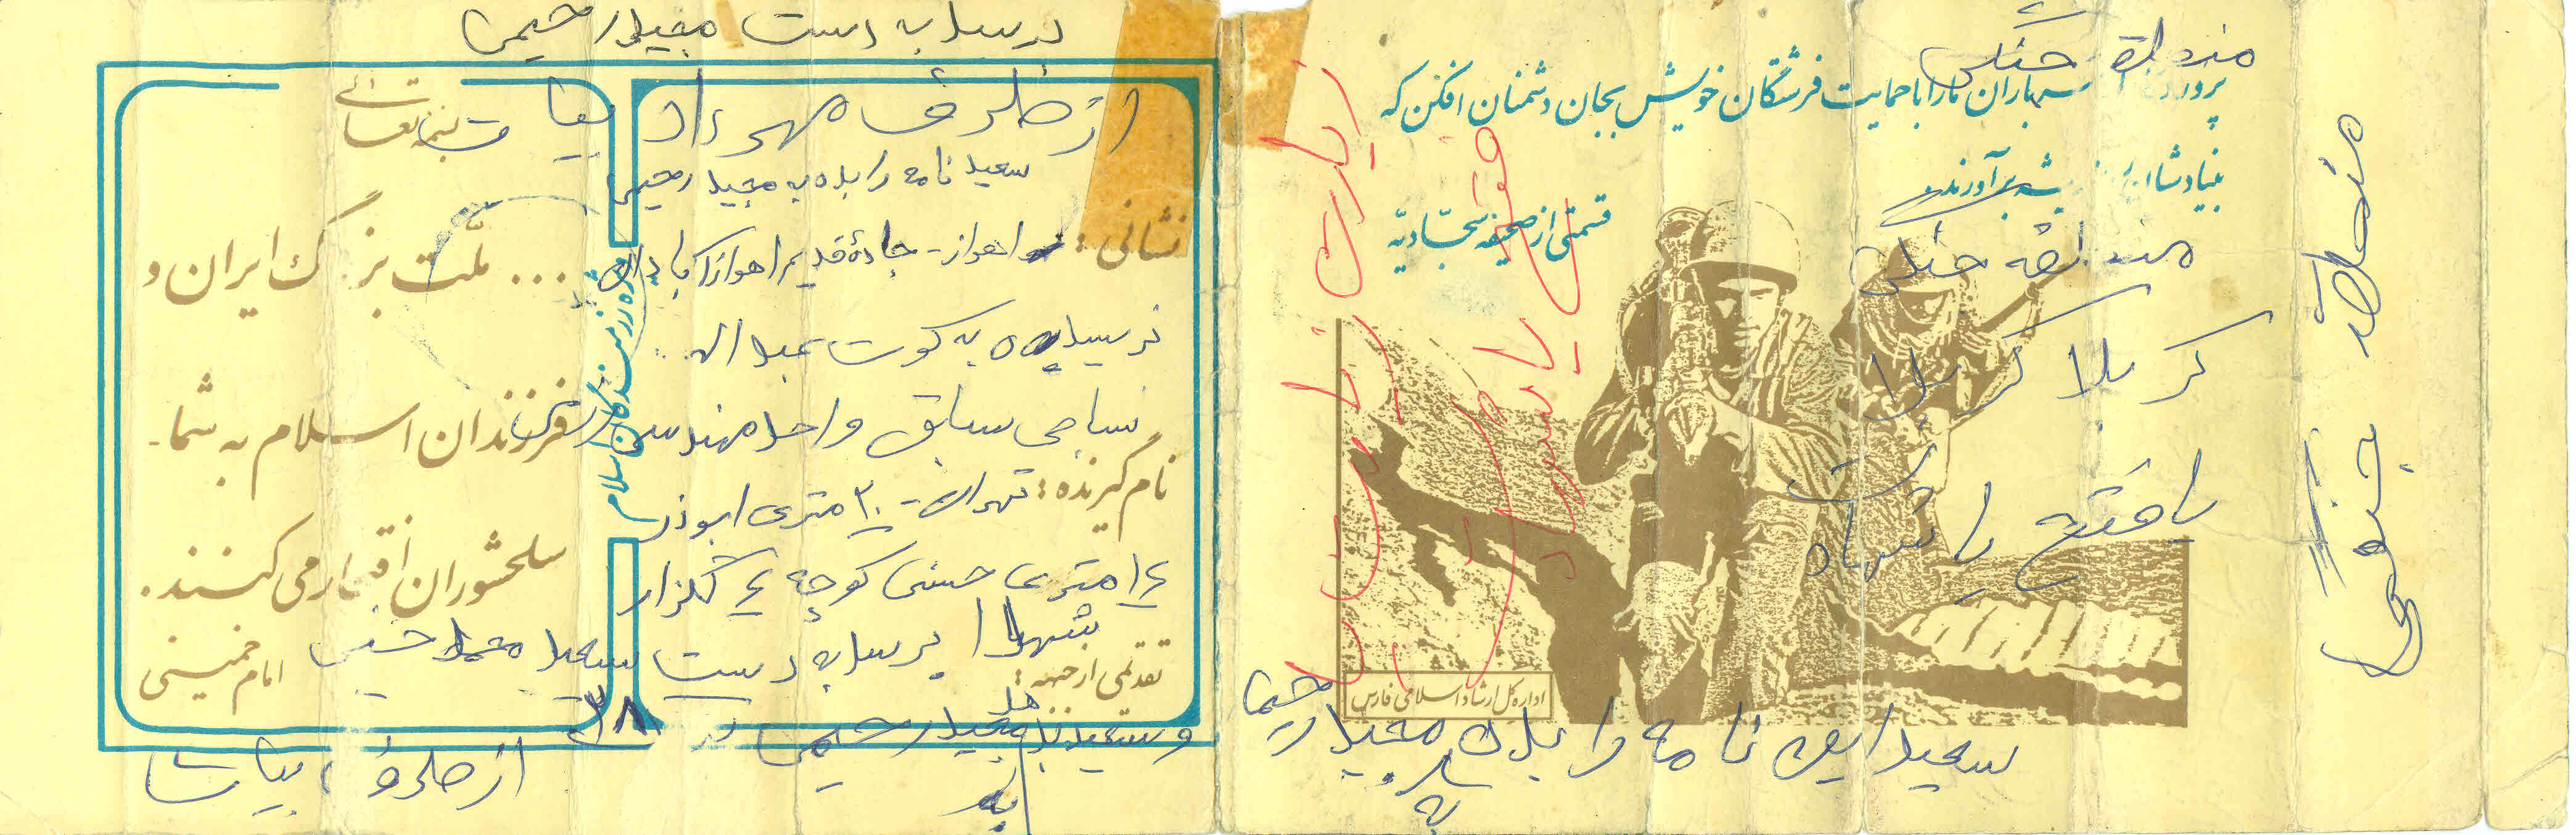 برسد به دست مجید رحیمی
از طرف مهرداد بیات
بسمه تعالی
سعید نامه را بده به مجید رحیمی
نشانی: اهواز - جادۀ قدیم اهواز آبادان
نرسیده به کوت عبداله
نساجی سابق واحد مهندسی
نام گیرنده: تهران - ۲۰ متری ابوذر
۱۴ متری حسنی کوچه ۴ گلزار
شهدا برسد به دست سعید محمد حسنی
تقدیمی از جبهه:
و سعید بده به مجید رحیمی
۳۸
از طرف بیات
... ملّت بزرگ ایران و
فرزندان اسلام به شما
سلحشوران افتخار می کنند.
امام خمینی
رزمندگان اسلام
منطقه جنگی
باران ما را با حمایت فرشتگان خویش بجان دشمنان افکن که
بنیادشان از ریشه برآورند.
قسمتی از صحیفه سجّادیّه
منطقه جنگی
کربلا کربلا
یا فتح یا شهادت
زیارت
یا
اداره کل ارشاد اسلامی فارس
سعید این نامه را بده به مجید رحیمی
منطقه جنوبی